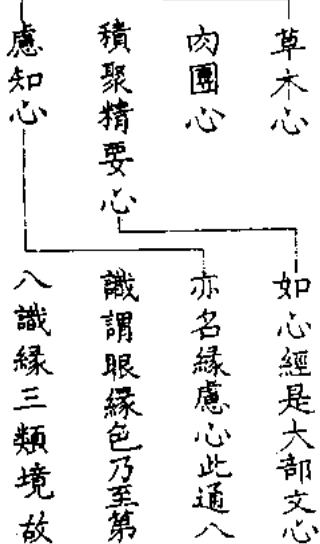 草木心
肉團心
積聚精要心
慮知心
如心經是大部文心
亦名緣慮心此通八
識謂眼緣色乃至第
八識緣三類境故